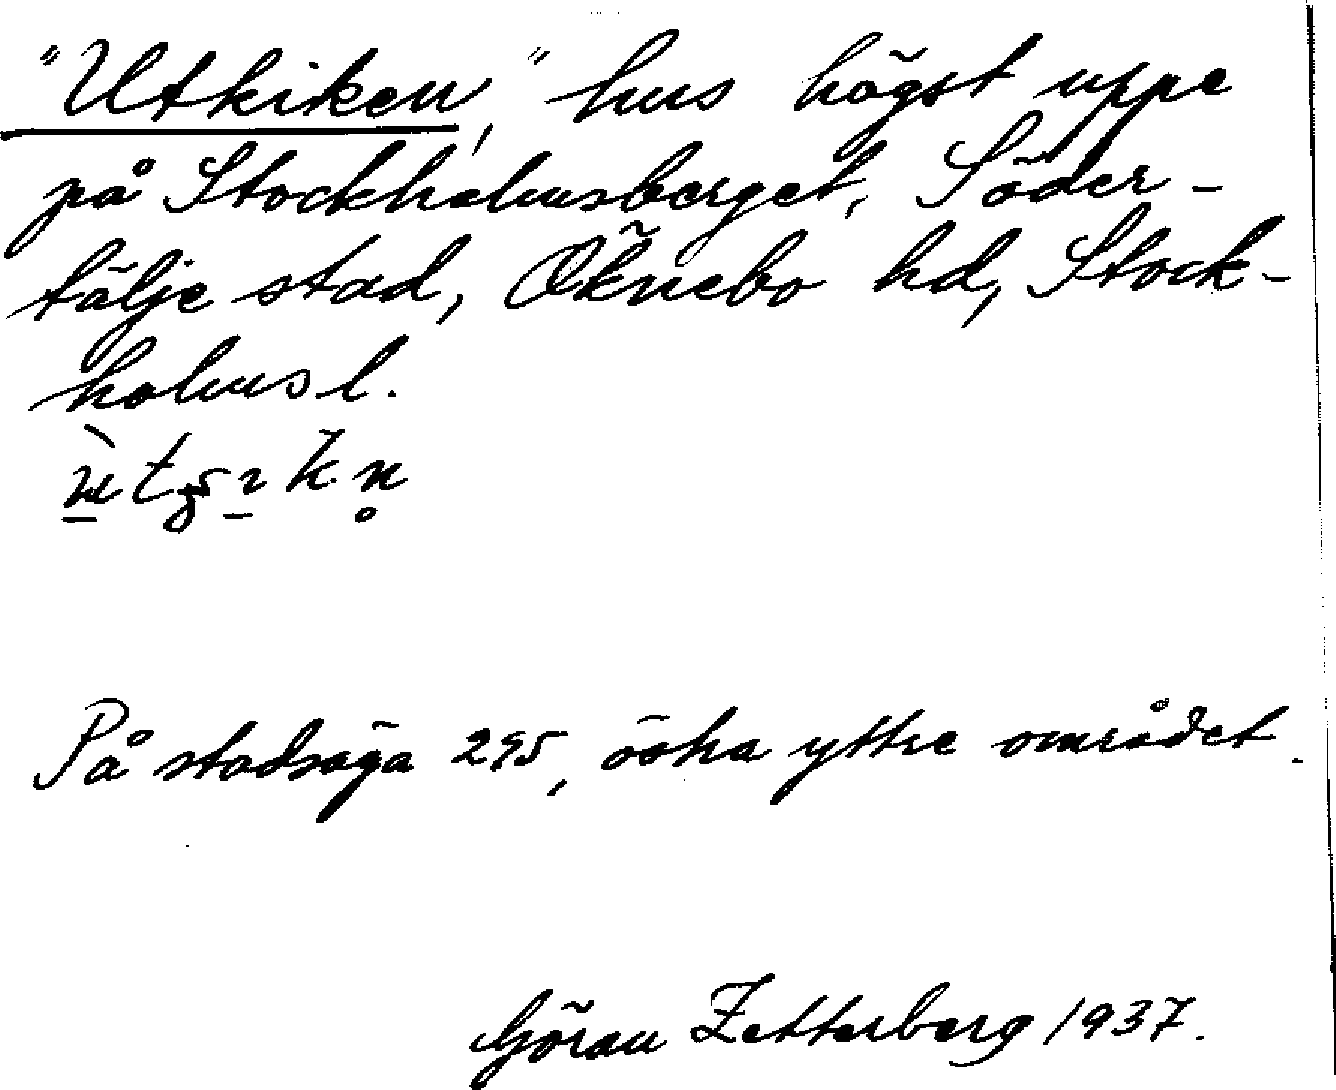 "Utkiken", hus högst uppe
på Stockholmsberget, Söder-
tälje stad, Öknebo hd, Stock-
holms l.
På stadsäga 295, östra yttre området.
Göran Zetterberg 1937.